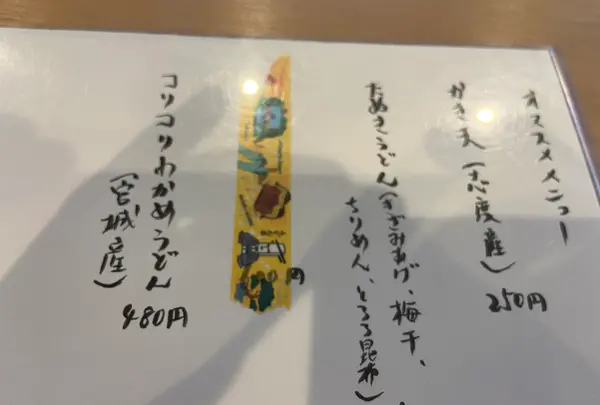 オススメメニュー
かき天(志度産)
250円
たぬきうどん(きざみあげ、梅干、
ちりめん、とろろ昆布)
円
コリコリわかめうどん
(宮城産)
480円